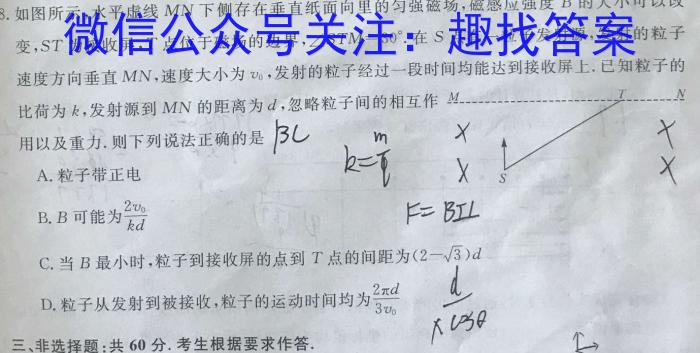 8.如图所示,水平虚线 MN 下侧存在垂直纸面向里的匀强磁场,磁感应强度 B 的大小可以改
变,ST
微信公众号关注：趣找答案
速度方向垂直MN,速度大小为 v₀,发射的粒子经过一段时间均能达到接收屏上.已知粒子的
比荷为 k,发射源到 MN 的距离为 d,忽略粒子间的相互作
用以及重力.则下列说法正确的是 BC
M T N
S
k=m/q
A. 粒子带正电
B. B 可能为2v₀/kd
F=BIL
C. 当 B 最小时,粒子到接收屏的点到 T 点的间距为(2-√3)d
D. 粒子从发射到被接收,粒子的运动时间均为2πd/3v₀
三、非选择题:共 60 分.考生根据要求作答.